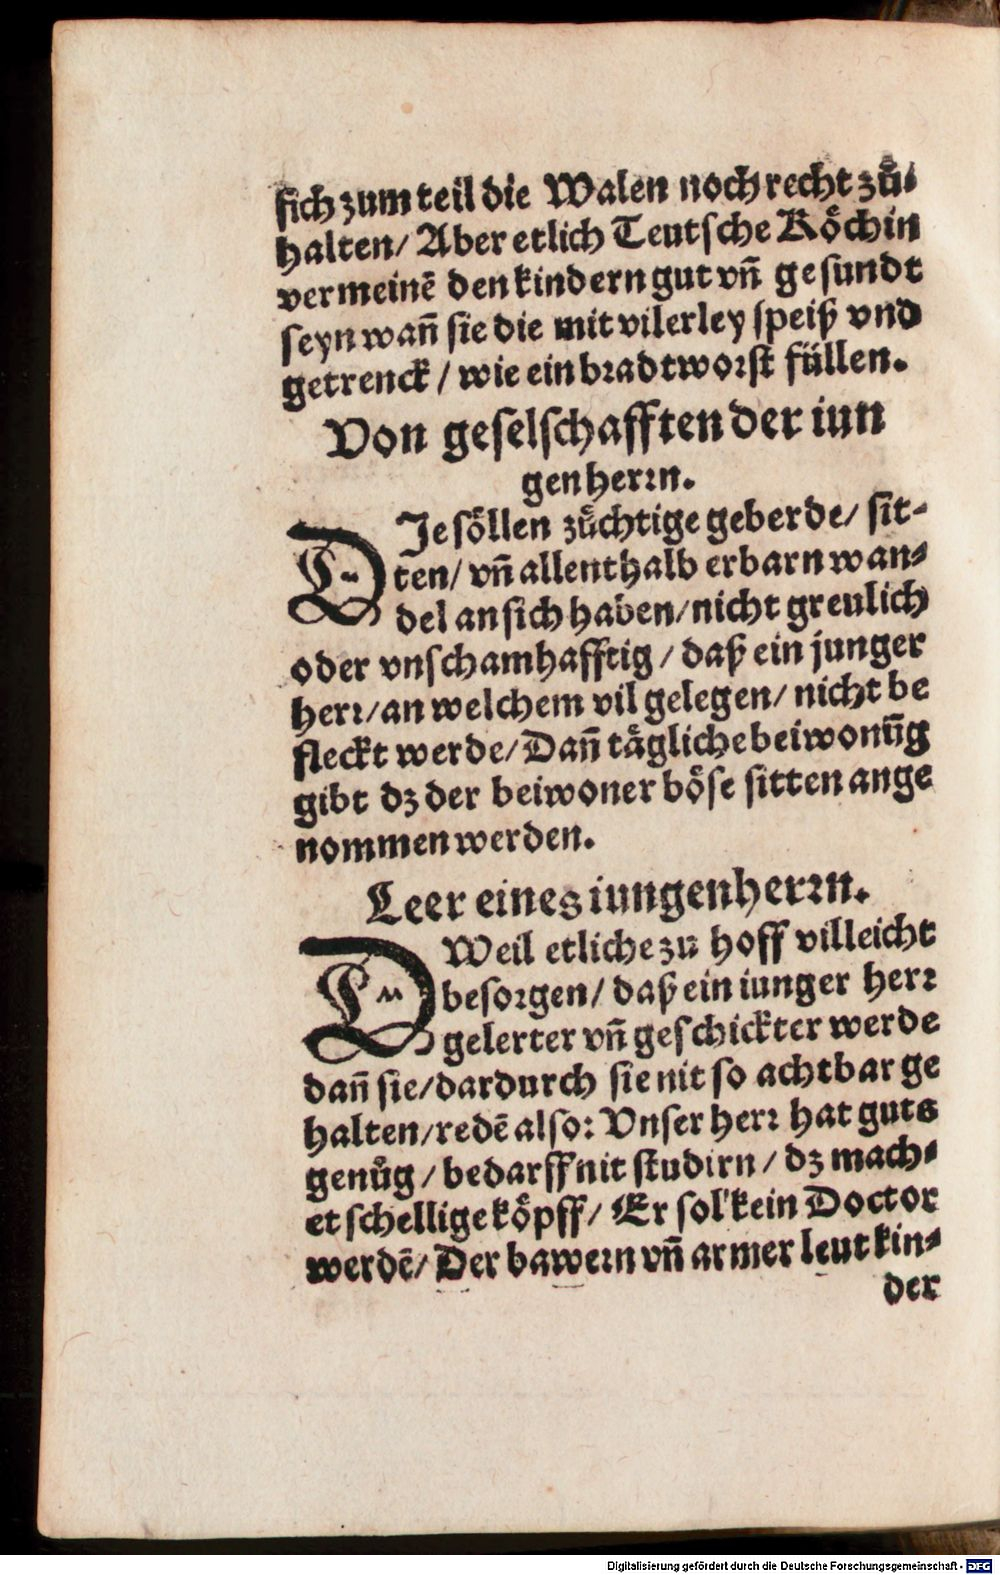 sich zum teil die Walen noch recht zůͤ-
halten/ Aber etlich Teutsche Koͤchin
vermeinē den kindern gut vn̄ gesundt
seyn wan̄ sie die mit vilerley speiß vnd
getrenck / wie ein bradtworst füllen.
Von geselschafften der iun
gen herrn.
DIe soͤllen zuͤchtige geberde/ sit-
ten/ vn̄ allenthalb erbarn wan-
del an sich haben/ nicht greulich
oder vnschamhafftig / daß ein junger
herr/ an welchem vil gelegen/ nicht be
fleckt werde/ Dan̄ taͤgliche beiwonūg
gibt dz der beiwoner boͤse sitten ange
nommen werden.
Leer eines iungen herrn.
DWeil etliche zu hoff villeicht
besorgen/ daß ein iunger herr
gelerter vn̄ geschickter werde
dan̄ sie/ dardurch sie nit so achtbar ge
halten/ redē also: Vnser herr hat guts
genůg / bedarff nit studirn / dz mach-
et schellige koͤpff/ Er sol kein Doctor
werdē/ Der bawern vn̄ armer leut kin-
der
Digitalisierung gefördert durch die Deutsche Forschungsgemeinschaft - DFG